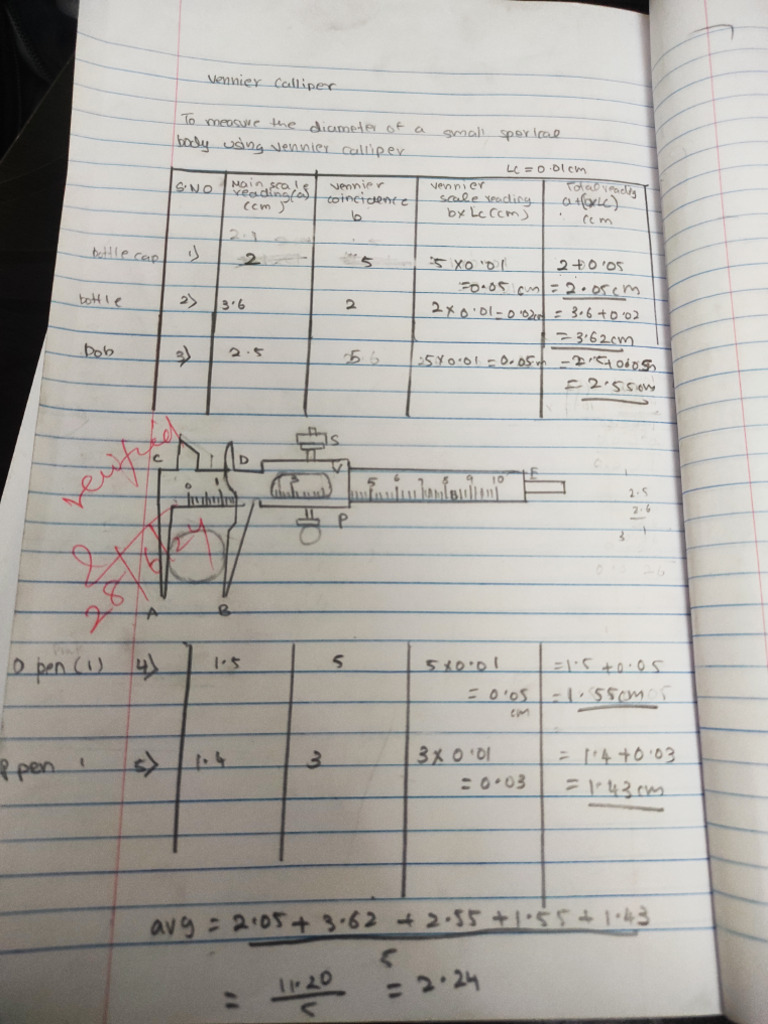 Vennier Calliper
To measure the diameter of a small sperical
body using vennier calliper
Lc = 0.01cm
S.NO Main scale reading(a) (cm) Vennier coincidence b vennier scale reading b x Lc (cm) Total reading a+(bxLc) cm
2.1
bottle cap 1) 2 5 5 x 0.01 2+0.05
=0.05 cm = 2.05cm
bottle 2) 3.6 2 2 x 0.01 = 0.02cm = 3.6+0.02
= 3.62cm
bob 3) 2.5 5 5 x 0.01 = 0.05
= 2.55cm
verified
28/6/24
C D S V E
0 1 5 6 7 8 9 10
P
A B
2.5
2.6
pen (1) 4) 1.5 5 5 x 0.01 =1.5 + 0.05
= 0.05 cm = 1.55cm
pen 5) 1.4 3 3 x 0.01 = 1.4+0.03
= 0.03 = 1.43cm
avg = 2.05 + 3.62 + 2.55 + 1.55 + 1.43
5
= 11.20 / 5 = 2.24